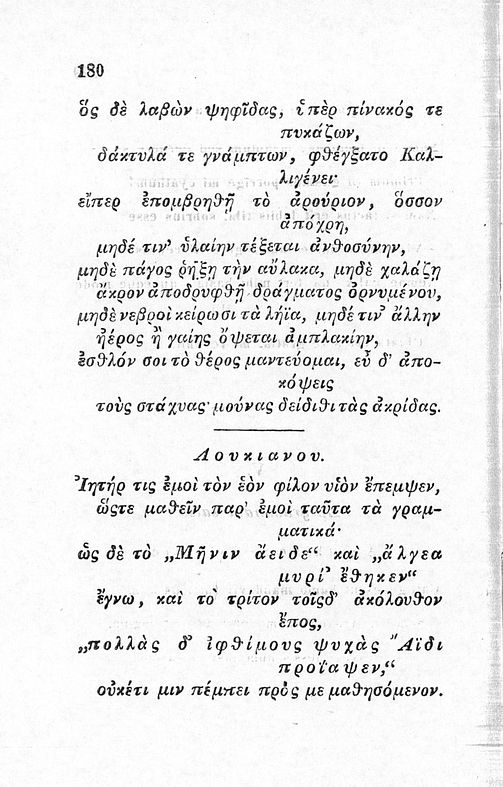 180
ὃς δὲ λαβὼν ψηφῖδας, ὑπὲρ πίνακός τε
πυκάζων,
δάκτυλά τε γνάμπτων, φθέγξατο Καλ-
λιγένει·
εἴπερ ἐπομβρηθῇ τὸ ἀρούριον, ὅσσον
ἀπόχρη,
μηδέ τιν' ὑλαίην τέξεται ἀνθοσύνην,
μηδὲ πάγος ῥήξῃ τὴν αὔλακα, μηδὲ χαλάζῃ
ἄκρον ἀποδρυφθῇ δράγματος ὀρνυμένου,
μηδὲ νεβροὶ κείρωσι τὰ λήϊα, μηδέ τιν' ἄλλην
ἠέρος ἢ γαίης ὄψεται ἀμπλακίην,
ἐσθλόν σοι τὸ θέρος μαντεύομαι, εὖ δ' ἀπο-
κόψεις
τοὺς στάχυας· μούνας δείδιθι τὰς ἀκρίδας.
Λουκιανου.
Ἰητήρ τις ἐμοὶ τὸν ἑὸν φίλον υἱὸν ἔπεμψεν,
ὥςτε μαθεῖν παρ' ἐμοὶ ταῦτα τὰ γραμ-
ματικά·
ὡς δὲ τὸ „Μῆνιν ἄειδε“ καὶ „ἄλγεα
μυρί' ἔθηκεν“
ἔγνω, καὶ τὸ τρίτον τοῖςδ' ἀκόλουθον
ἔπος,
„πολλὰς δ' ἰφθίμους ψυχὰς Ἄϊδι
προΐαψεν,“
οὐκέτι μιν πέμπει πρός με μαθησόμενον.